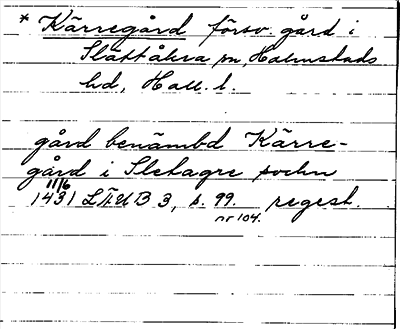 * Kärregård försv. gård i
Slättåkra sn, Halmstads
hd, Hall. l.
gård benämbd Kärre-
gård i Sletagre sochn
11/6
1431 LÄUB 3, s. 99. regest.
nr 104.